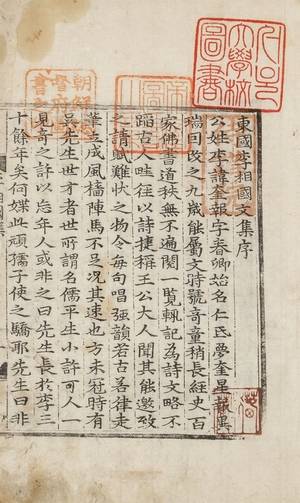 東國李相國文集序
公姓李諱奎報字春卿始名仁氐夢奎星報異
瑞而改之九歲能屬文時號奇童稍長經史百
家佛書道秩無不遍閱一覽輒記為詩文略不
蹈古人畦徑以詩捷稱王公大人聞其能邀致
之請賦難狀之物令每句唱强韻若古若律走
筆立成風檣陣馬不足況其速也方未冠時有
吳先生世才者世所謂名儒平生小許可人一
見奇之許以忘年人或非之曰先生長於李三
十餘年矣何媟此頑孺子使之驕耶先生曰非
圖書
朝鮮
督府
書